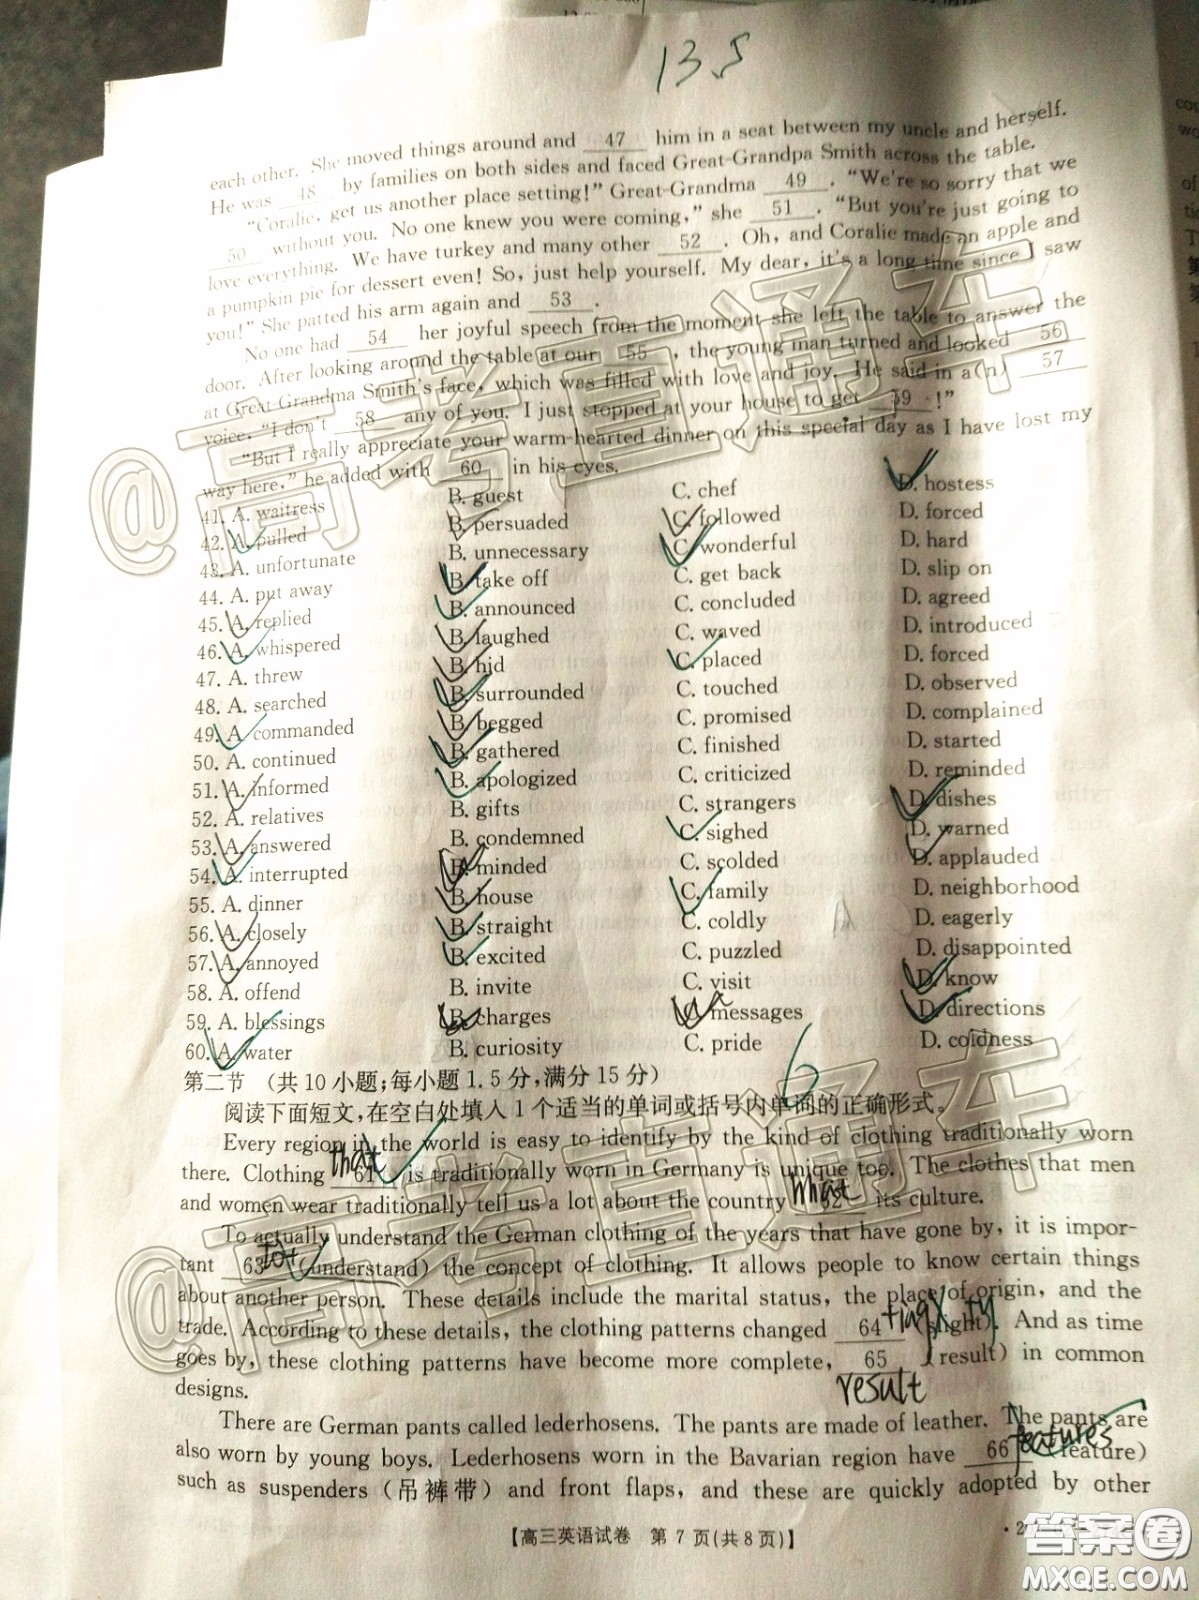 13.5
each other. She moved things around and 47 him in a seat between my uncle and herself.
He was 48 by families on both sides and faced Great-Grandpa Smith across the table.
"Coralie, get us another place setting!" Great-Grandma 49 . "We're so sorry that we
50 without you. No one knew you were coming," she 51 . "But you're just going to
love everything. We have turkey and many other 52 . Oh, and Coralie made an apple and
a pumpkin pie for dessert even! So, just help yourself. My dear, it's a long time since I saw
you!" She patted his arm again and 53 .
No one had 54 her joyful speech from the moment she left the table to answer the
door. After looking around the table at our 55 , the young man turned and looked 56
at Great-Grandma Smith's face, which was filled with love and joy. He said in a(n) 57
voice, "I don't 58 any of you. I just stopped at your house to get 59 !"
"But I really appreciate your warm-hearted dinner on this special day as I have lost my
way here," he added with 60 in his eyes.
41. A. waitress B. guest C. chef D. hostess
42. A. pulled B. persuaded C. followed D. forced
43. A. unfortunate B. unnecessary C. wonderful D. hard
44. A. put away B. take off C. get back D. slip on
45. A. replied B. announced C. concluded D. agreed
46. A. whispered B. laughed C. waved D. introduced
47. A. threw B. hid C. placed D. forced
48. A. searched B. surrounded C. touched D. observed
49. A. commanded B. begged C. promised D. complained
50. A. continued B. gathered C. finished D. started
51. A. informed B. apologized C. criticized D. reminded
52. A. relatives B. gifts C. strangers D. dishes
53. A. answered B. condemned C. sighed D. warned
54. A. interrupted B. minded C. scolded D. applauded
55. A. dinner B. house C. family D. neighborhood
56. A. closely B. straight C. coldly D. eagerly
57. A. annoyed B. excited C. puzzled D. disappointed
58. A. offend B. invite C. visit D. know
59. A. blessings B. charges C. messages D. directions
60. A. water B. curiosity C. pride D. coldness
第二节 (共10小题;每小题1.5分,满分15分)
6
阅读下面短文,在空白处填入1个适当的单词或括号内单词的正确形式。
Every region in the world is easy to identify by the kind of clothing traditionally worn
there. Clothing 61 that is traditionally worn in Germany is unique too. The clothes that men
and women wear traditionally tell us a lot about the country 62 what its culture.
To actually understand the German clothing of the years that have gone by, it is impor-
tant 63 (understand) the concept of clothing. It allows people to know certain things
about another person. These details include the marital status, the place of origin, and the
trade. According to these details, the clothing patterns changed 64 (slight). And as time
goes by, these clothing patterns have become more complete, 65 (result) in common
result
designs.
There are German pants called lederhosens. The pants are made of leather. The pants are
also worn by young boys. Lederhosens worn in the Bavarian region have 66 features (feature)
such as suspenders (吊裤带) and front flaps, and these are quickly adopted by other
【高三英语试卷 第7页(共8页)】
@高考直通车
@高考直通车
答案圈
MXQE.COM